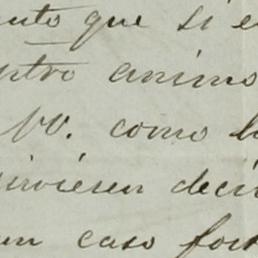 nto que si e
ntro animo
VV. como l
irviesen deci
un caso for